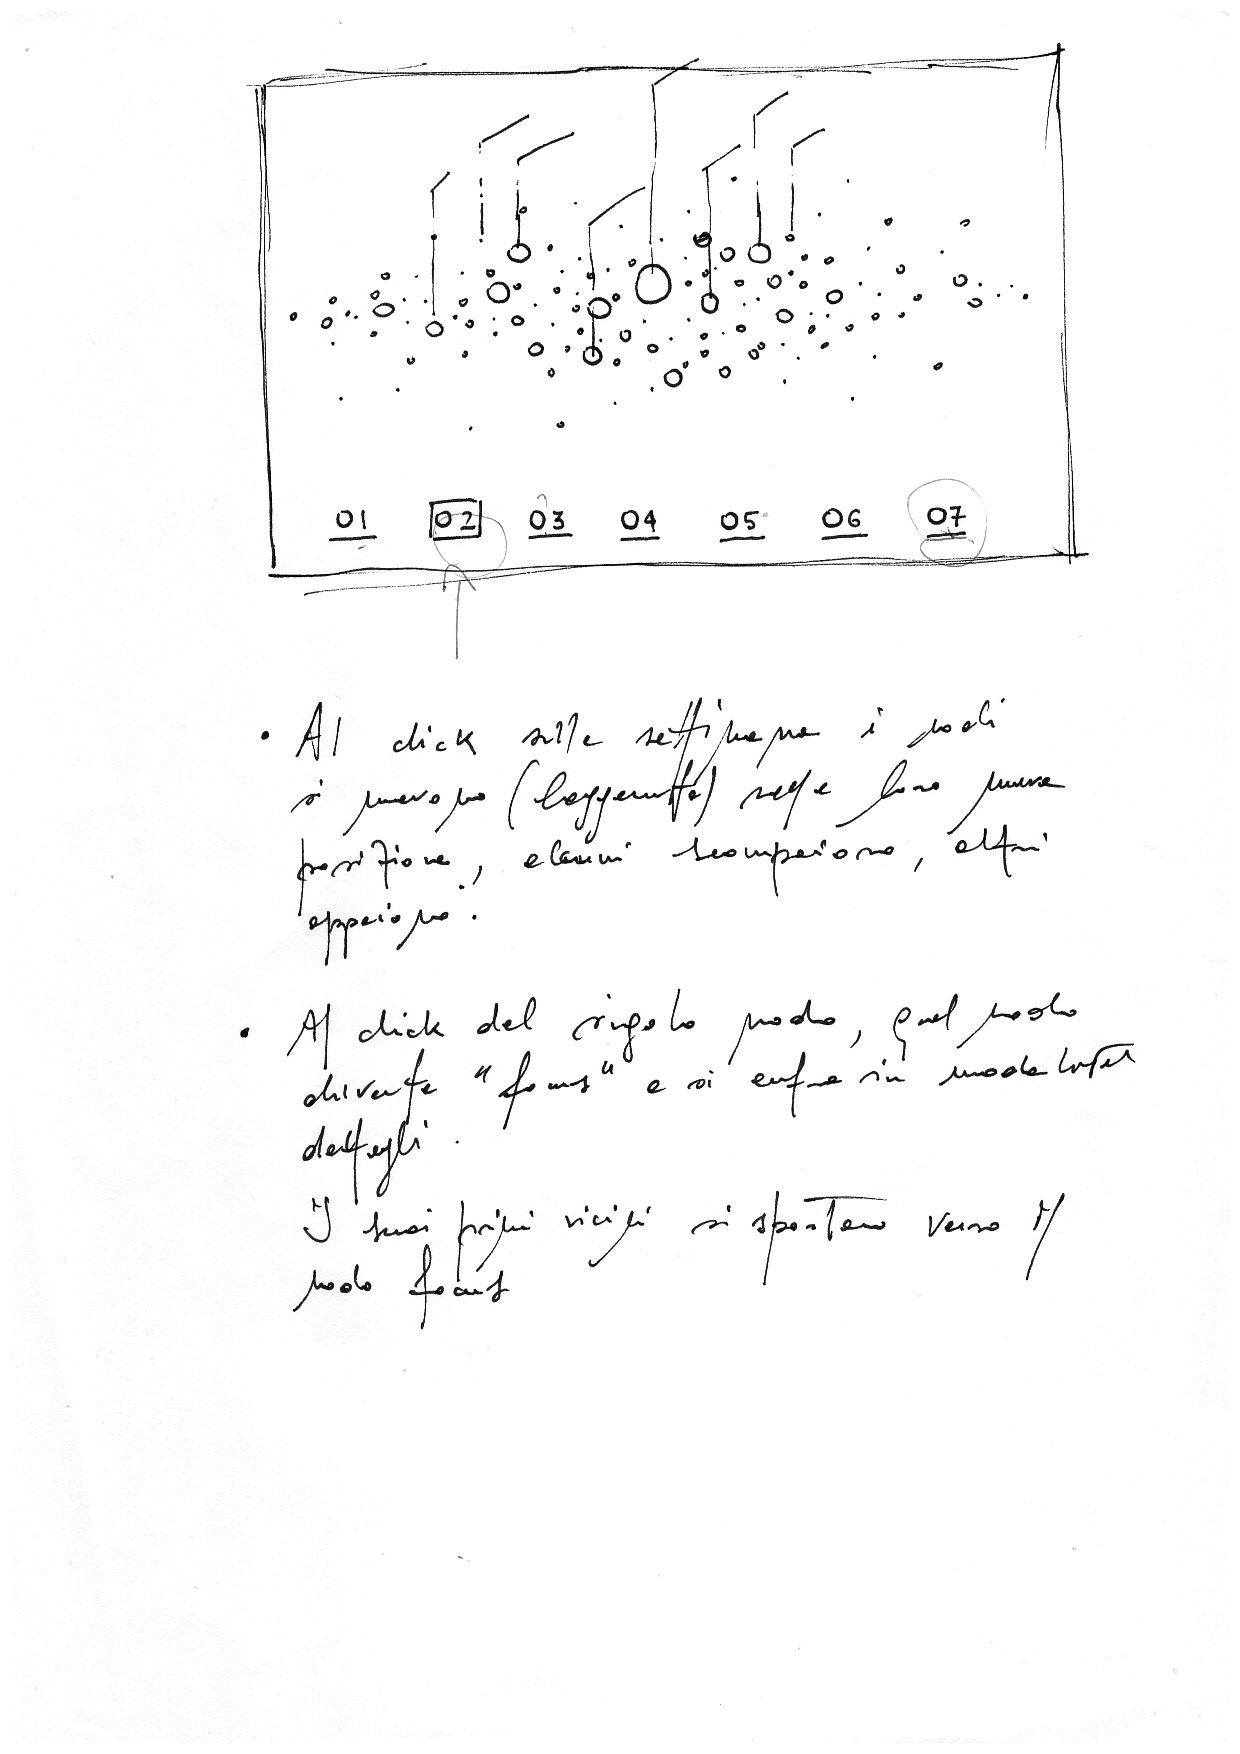 01 02 03 04 05 06 07
• Al click sulla settimana i nodi
si muovono (leggermente) nella loro nuova
posizione, alcuni scompaiono, altri
appaiono.
• Al click del singolo nodo, quel nodo
diventa "focus" e si entra in modalità
dettagli.
I suoi primi vicini si spostano verso il
nodo focus